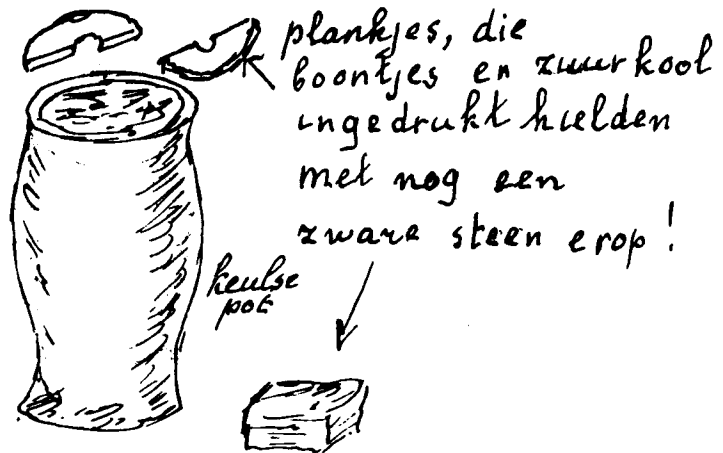 plankjes, die
boontjes en zuurkool
ingedrukt hielden
met nog een
zware steen erop!
keulse
pot